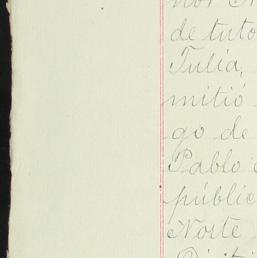 nor
de tuto
Tulia,
mitió
go de
Pablo
públic
Norte